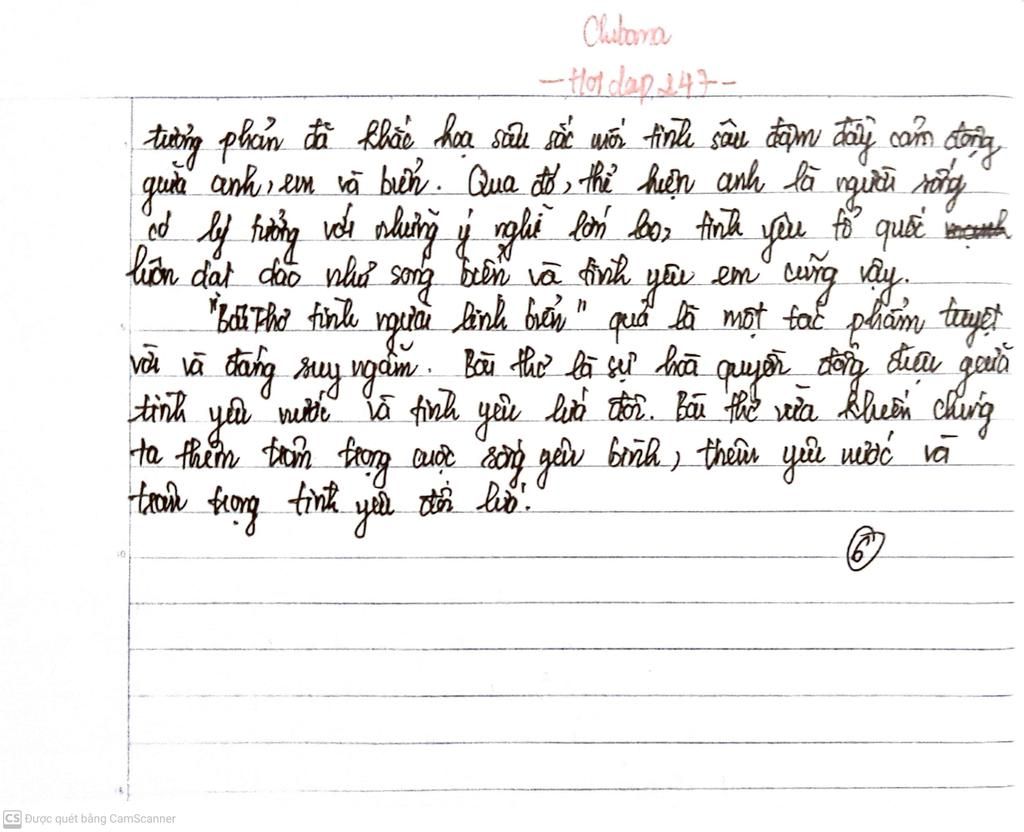 Chibana
- Hoidap247 -
tưởng phản đã khắc họa sâu sắc mối tình sâu đậm đầy cảm động
giữa anh, em và biển. Qua đó, thể hiện anh là người sống
có lý tưởng với những ý nghĩ lớn lao, tình yêu tổ quốc
luôn dạt dào như sóng biển và tình yêu em cũng vậy.
"Bài Thơ tình người lính biển" quả là một tác phẩm tuyệt
vời và đáng suy ngẫm. Bài thơ là sự hoà quyện đồng điệu giữa
tình yêu nước và tình yêu lứa đôi. Bài thơ vừa khiến chúng
ta thêm trân trọng cuộc sống yên bình, thêm yêu nước và
trân trọng tình yêu đôi lứa.
6
CS Được quét bằng CamScanner